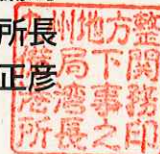 所長
正彦
九州地方整
備局下関
港湾事務
所長之印